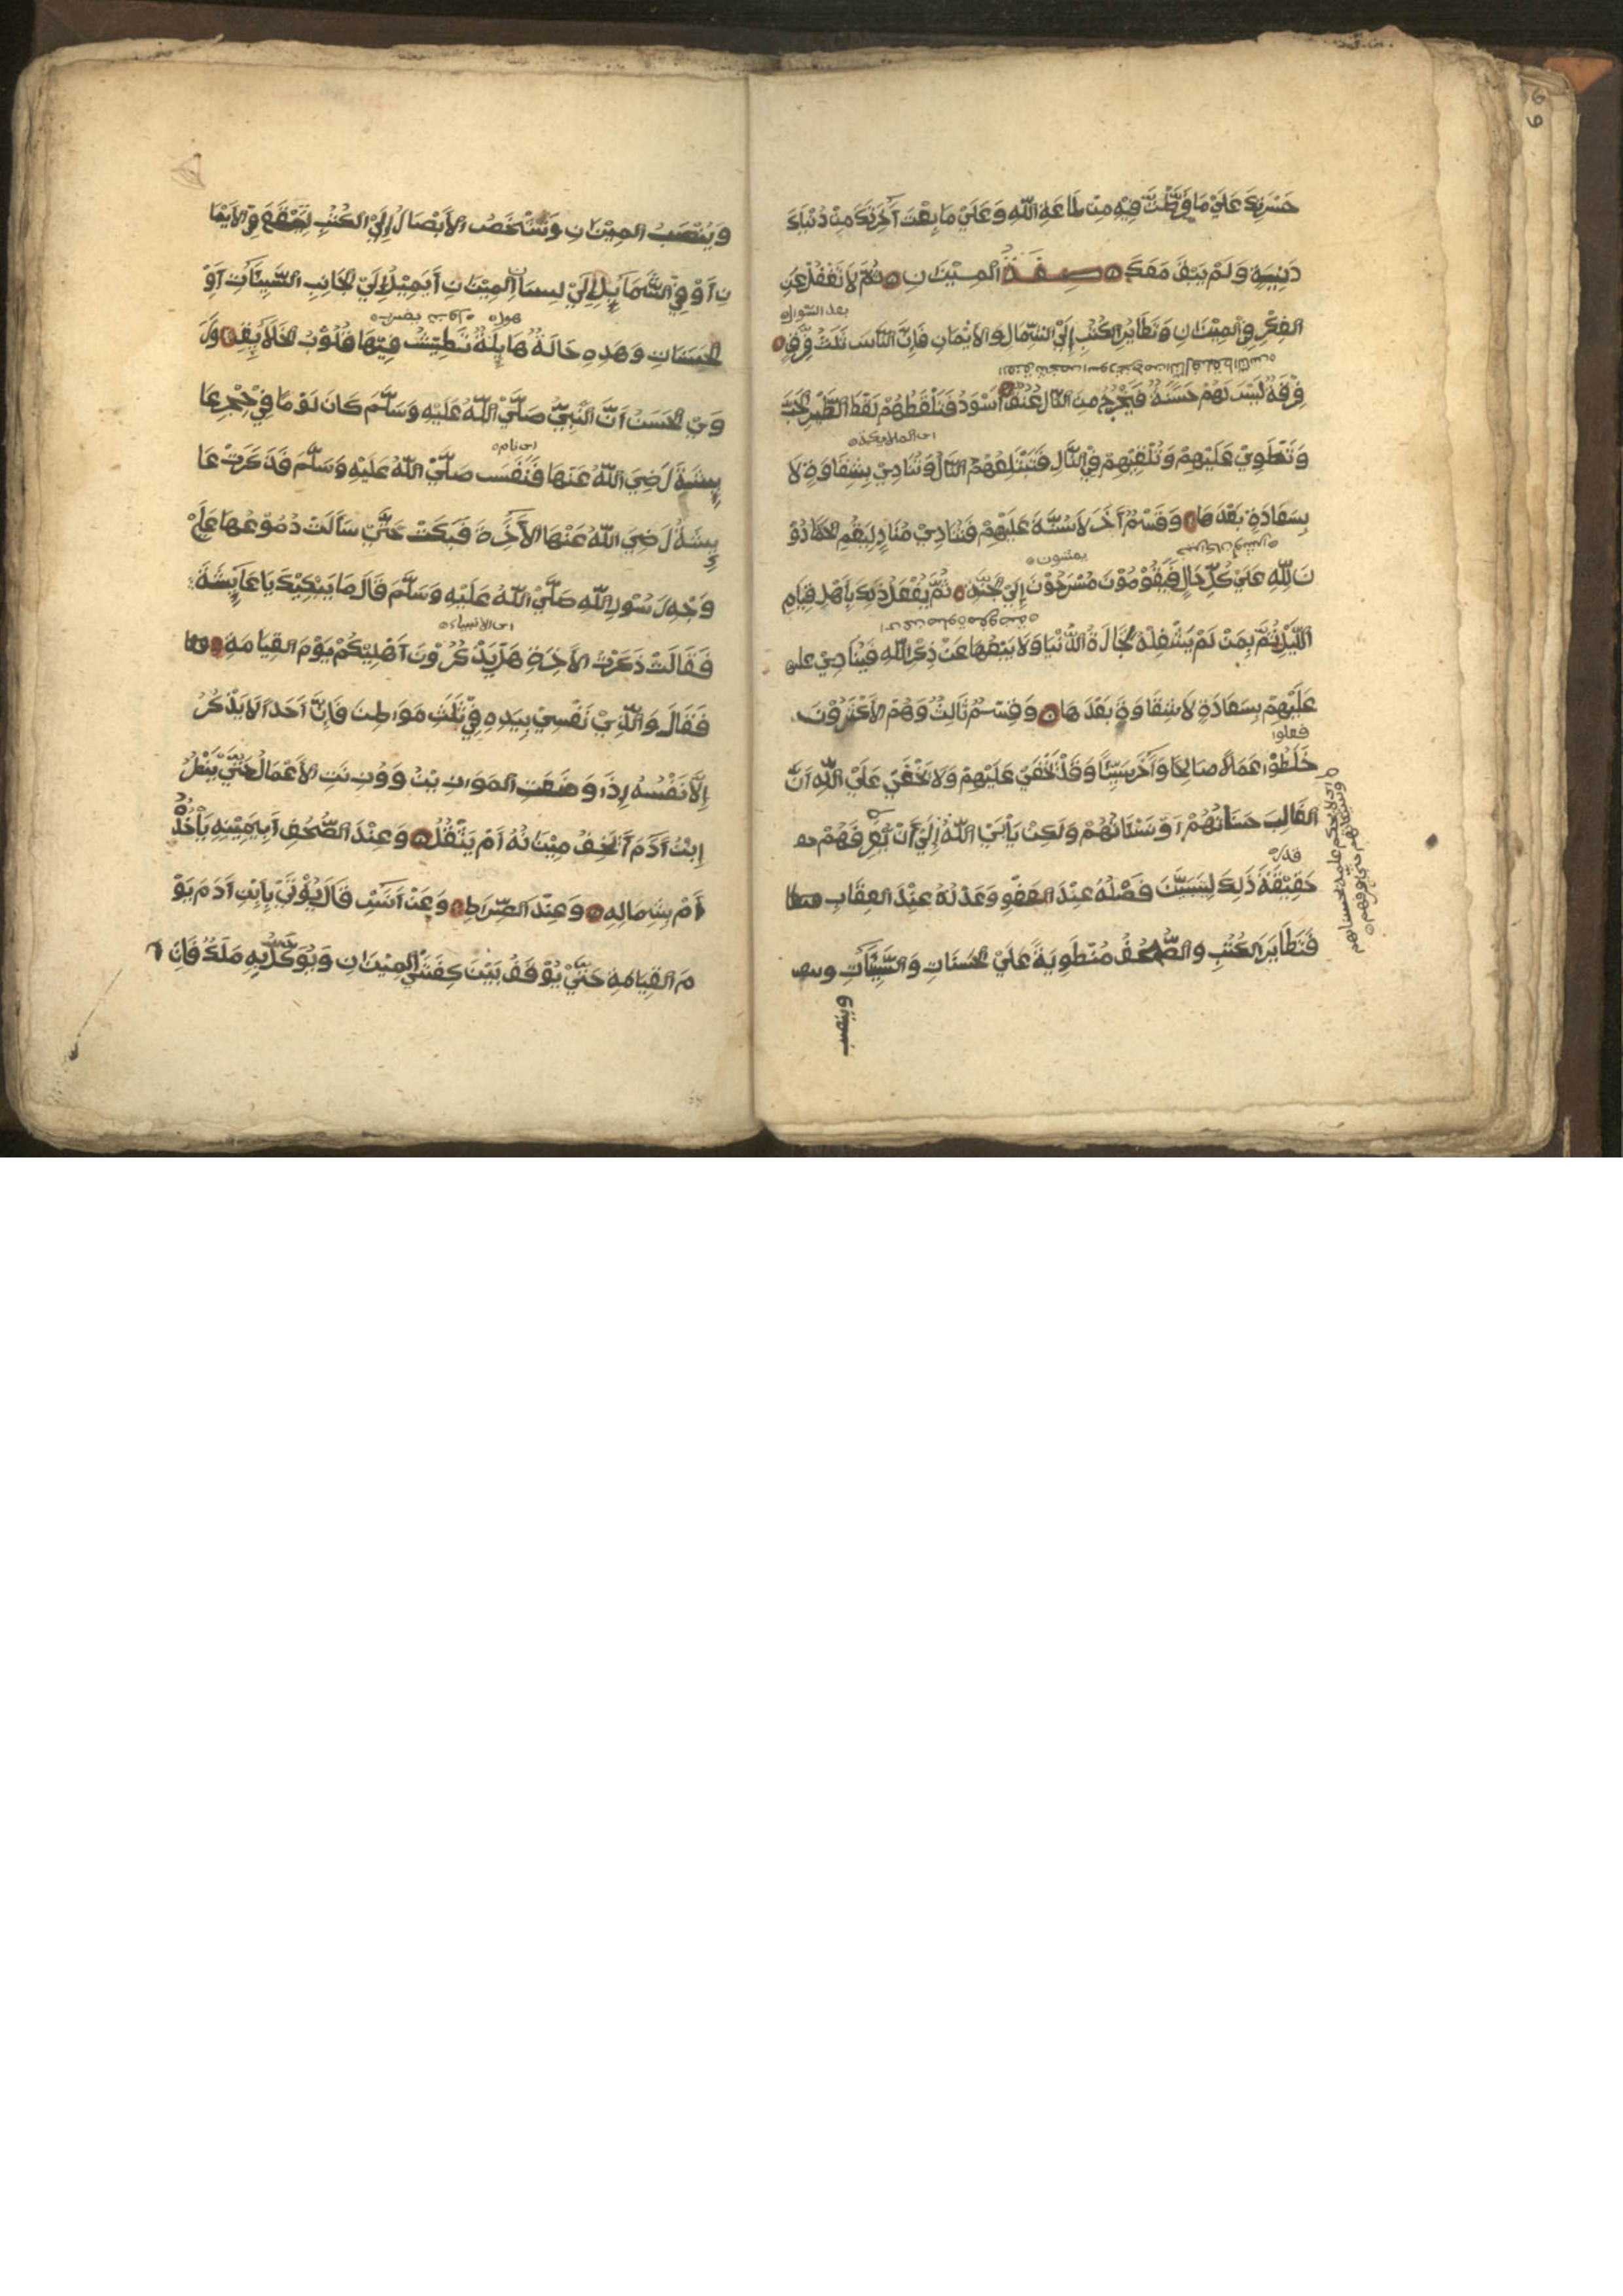 حَسْرَتِكَ عَلَيْ مَا فَرَّطْتَ فِيْهِ مِنْ طَاعَةِ اللّٰهِ وَعَلَيْ مَا بِعْتَ آخِرَتَكَ مِنْ دُنْيَاءَ
دَنِيَّةٍ وَلَمْ يَبْقَ مَعَكَ ۝ صِفَةُ المِيْزَانِ ۝ ثُمَّ لَا تَغْفُلْ عَنِ
بعد السّوال
الفِكْرِ فِيْ المِيْزَانِ وَتَطَايُرِ الكُتُبِ إِلَيْ الشِّمَالِ وَالأَيْمَانِ فَإِنَّ النَّاسَ ثَلَثُ فِرَقٍ ۝
فِرْقَةٌ لَيْسَ لَهُمْ حَسَنَةٌ فَيَخْرُجُ مِنَ النَّارِ عُنُقٌ أَسْوَدُ فَتَلْقُطُهُمْ لَقْطَ الطَّيْرِ الحَبَّ
اى الملايكة
وَتَنْطَوِيْ عَلَيْهِمْ وَتُلْقِيْهِمْ فِيْ النَّارِ فَتَبْتَلِعُهُمْ النَّارُ وَتُنَادِيْ بِشِقَاوَةٍ لَا
بِسَعَادَةٍ بَعْدَهَا ۝ وَقِسْمٌ آخَرُ لَا سَيِّئَةَ عَلَيْهِمْ فَتُنَادِيْ مُنَادٍ لِيَقُمِ الحَمَّادُوْ
يمشون
نَ لِلّٰهِ عَلَيْ كُلِّ حَالٍ فَيَقُوْمُوْنَ مُسْرَحُوْنَ إِلَيْ الجَنَّةِ ۝ ثُمَّ يُفْعَلُ ذَلِكَ بِأَهْلِ قِيَامِ
اللَّيْلِ ثُمَّ بِمَنْ لَمْ يَشْغِلْهُ تِجَارَةُ الدُّنْيَا وَلَا بَيْعُهَا عَنْ ذِكْرِ اللّٰهِ فَيُنَادِيْ عليه
عَلَيْهِمْ بِسَعَادَةٍ لَا شِقَاوَةَ بَعْدَهَا ۝ وَقِسْمٌ ثَالِثٌ وَهُمْ الأَكْثَرُوْنَ
فعلوا
خَلَطُوْا عَمَلًا صَالِحًا وَآخَرَ سَيِّئًا وَقَدْ يَخْفَيْ عَلَيْهِمْ وَلَا يَخْفَيْ عَلَيْ اللّٰهِ أَنَّ
الغَالِبَ حَسَنَاتُهُمْ أَوْ سَيِّئَاتُهُمْ وَلَكِنْ يَأْبَيْ اللّٰهُ إِلَيْ أَنْ يُعَرِّفَهُمْ
قدر
حَقِيْقَةَ ذَلِكَ لِيَتَبَيَّنَ فَضْلُهُ عِنْدَ العَفْوِ وَعَدْلُهُ عِنْدَ العِقَابِ
فَتَطَايَرَ الكُتُبِ وَالصُّحُفُ مُنْطَوِيَةً عَلَيْ الحَسَنَاتِ وَالسَّيِّئَاتِ وينص
وينصب
وَيُنْصَبُ المِيْزَانِ وَتُشْخَصُ الأَبْصَارُ إِلَيْ الكُتُبِ لِتَقَعَ فِيْ الأَيْمَا
نِ أَوْ فِيْ الشَّمَايِلِ إِلَيْ لِسَانِ المِيْزَانِ أَيَمِيْلُ إِلَيْ الجَانِبِ السَّيِّئَاتِ أَوْ
هول
الحَسَنَاتِ وَهَذِهِ حَالَةٌ هَايِلَةٌ تَطِيْشُ فِيْهَا قُلُوْبُ الخَلَايِقِ ۝ وَرَ
وَيْ الحَسَنُ أَنَّ النَّبِيَّ صَلَّيْ اللّٰهُ عَلَيْهِ وَسَلَّمَ كَانَ يَوْمًا فِيْ حِجْرِ عَا
اى نام
يِشَةَ رَضِيَ اللّٰهُ عَنْهَا فَنَعَسَ صَلَّيْ اللّٰهُ عَلَيْهِ وَسَلَّمَ فَذَكَرَتْ عَا
يِشَةُ رَضِيَ اللّٰهُ عَنْهَا الآخِرَةَ فَبَكَتْ حَتَّيْ سَالَتْ دُمُوْعُهَا عَلَيْ
وَجْهِ رَسُوْلِ اللّٰهِ صَلَّيْ اللّٰهُ عَلَيْهِ وَسَلَّمَ قَالَ مَا يَبْكِيْكِ يَا عَايِشَةُ
اى الانبياء
فَقَالَتْ ذَكَرْتُ الآخِرَةِ هَلْ يَذْكُرُوْنَ أَهْلِيْكُمْ يَوْمَ القِيَامَةِ ۝
فَقَالَ وَالَّذِيْ نَفْسِيْ بِيَدِهِ فِيْ ثَلَثِ مَوَاطِنَ فَإِنَّ أَحَدًا لَا يَذْكُرُ
إِلَّا نَفْسُهُ إِذَا وَضَعَتِ المَوَازِيْنُ وَوُزِنَتِ الأَعْمَالُ حَتَّيْ يَنْظُرُ
اِبْنُ آدَمَ أَيَخِفُّ مِيْزَانُهُ أَمْ يَثْقُلُ ۝ وَعِنْدَ الصُّحُفِ أَبِيَمِيْنِهِ يَأْخُذُ
أَمْ بِشِمَالِهِ ۝ وَعِنْدَ الصِّرَاطِ ۝ وَعَنْ أَنَسٍ قَالَ يُوْتَيْ بِابْنِ آدَمَ يَوْ
مَ القِيَامَةِ حَتَّيْ يُوْقَفُ بَيْنَ كِفَّتَيْ المِيْزَانِ وَيُوَكَّلُ بِهِ مَلَكٌ فَإِنْ